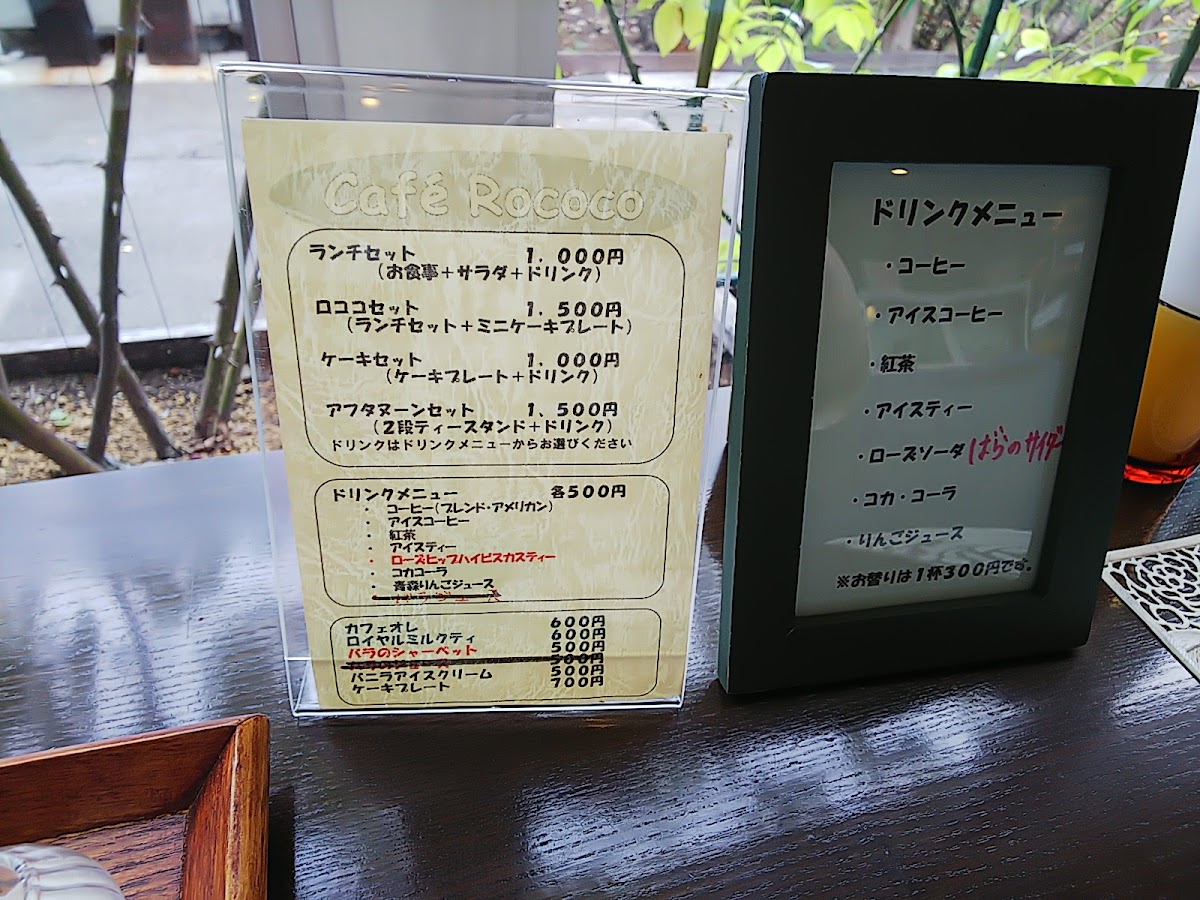 Café Rococo
ランチセット 1，000円
（お食事＋サラダ＋ドリンク）
ロココセット 1，500円
（ランチセット＋ミニケーキプレート）
ケーキセット 1，000円
（ケーキプレート＋ドリンク）
アフタヌーンセット 1，500円
（2段ティースタンド＋ドリンク）
ドリンクはドリンクメニューからお選びください
ドリンクメニュー 各500円
・ コーヒー（ブレンド・アメリカン）
・ アイスコーヒー
・ 紅茶
・ アイスティー
・ ローズヒップハイビスカスティー
・ コカコーラ
・ 青森りんごジュース
カフェオレ 600円
ロイヤルミルクティ 600円
バラのシャーベット 500円
500円
バニラアイスクリーム 500円
ケーキプレート 700円
ドリンクメニュー
・コーヒー
・アイスコーヒー
・紅茶
・アイスティー
・ローズソーダ ばらのサイダー
・コカ・コーラ
・りんごジュース
※お替りは1杯300円です。